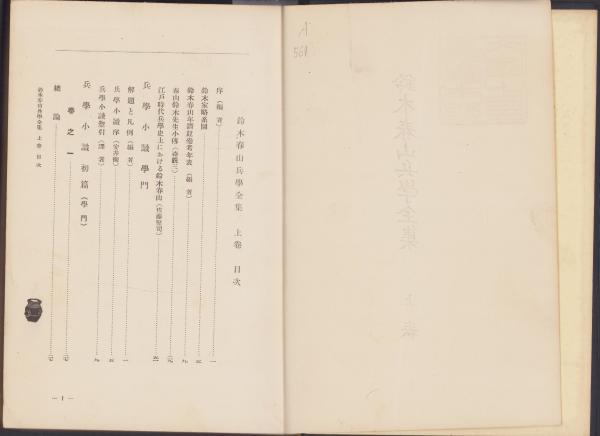 A
561
鈴木春山兵學全集 上卷
鈴木春山兵學全集 上卷 目次
序（編者）
鈴木家略系圖
鈴木春山年譜並參考年表（編者）
春山鈴木先生小傳
江戸時代兵學史上における鈴木春山（佐藤堅司）
兵學小識學門
解題と凡例（編者）一
兵學小識序
兵學小識題引（譯者）
兵學小識初篇（學門）
卷之一
總論
鈴木春山兵學全集 上卷 目次
— 1 —